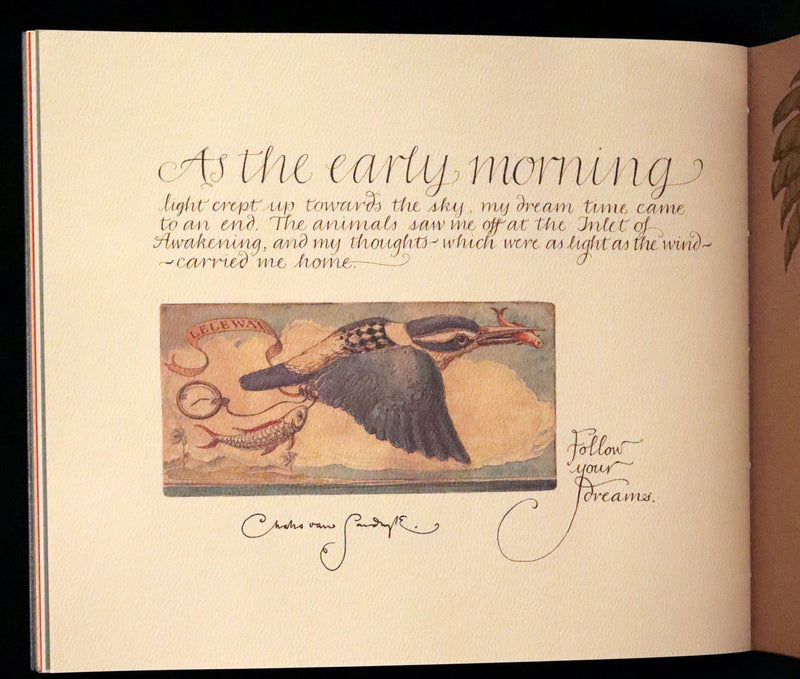 As the early morning
light crept up towards the sky, my dream time came
to an end. The animals saw me off at the Inlet of
Awakening, and my thoughts~which were as light as the wind~
~carried me home.
LELEWA
Follow
your
dreams.